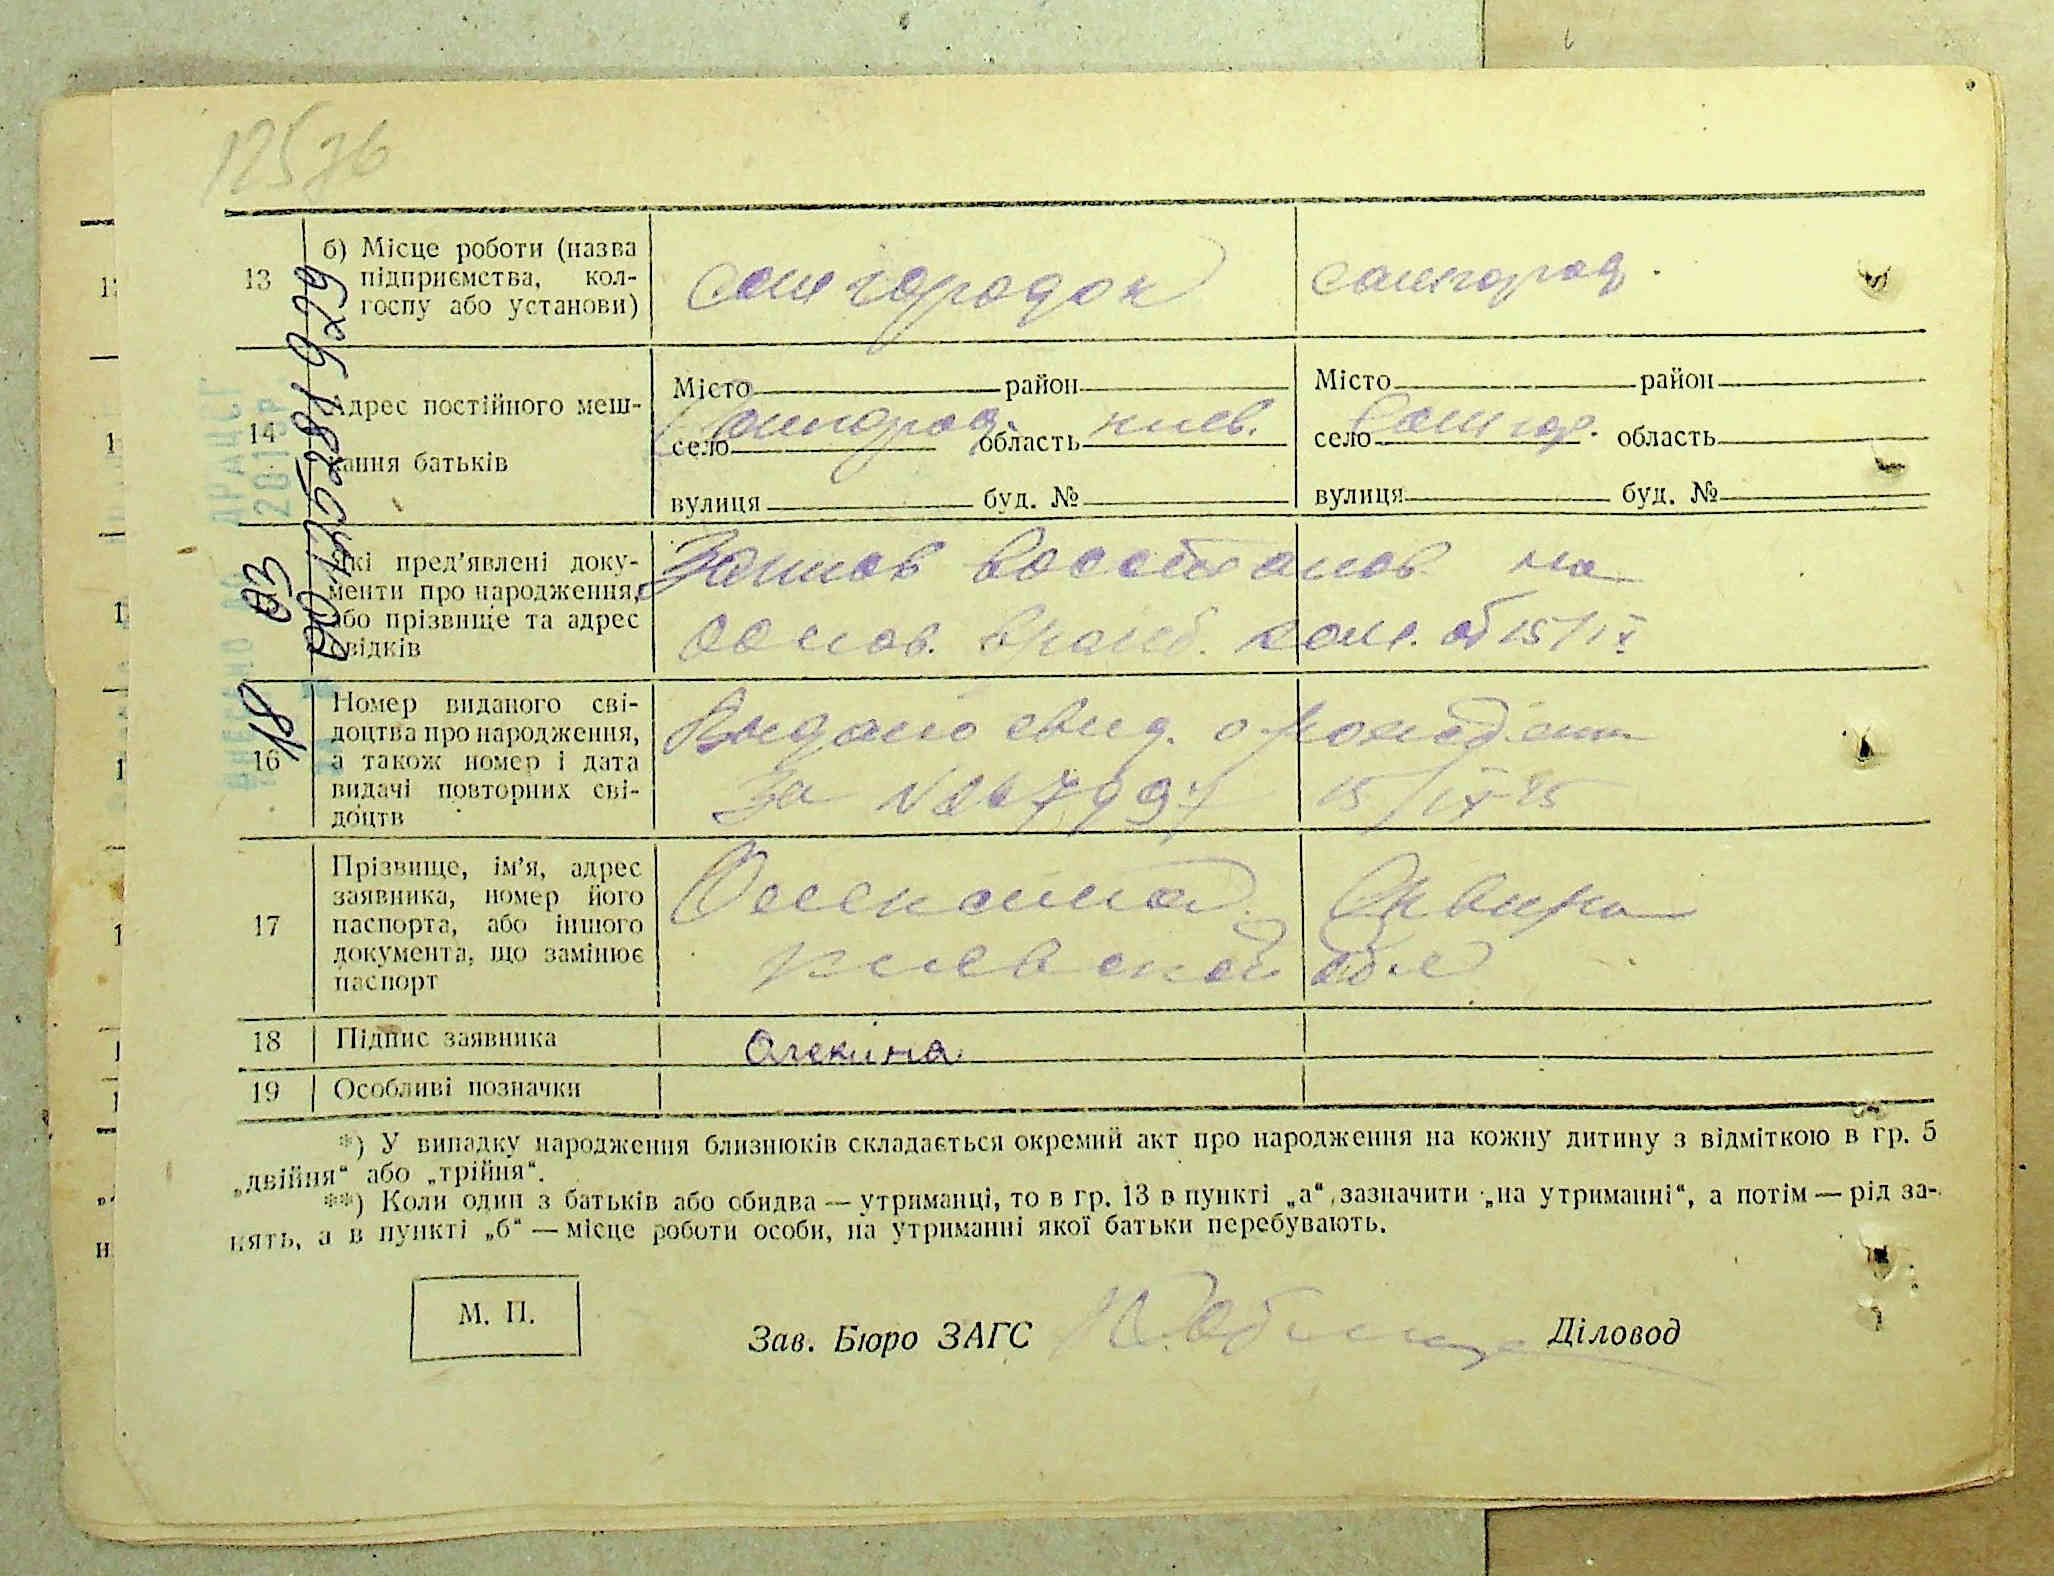 13
б) Місце роботи (назва
підприємства, кол-
госпу або установи)
Самгородок
самгород.
14
Адрес постійного меш-
кання батьків
Місто район
Самгород. киев.
село область
вулиця буд. №
Місто район
Самгор.
село область
вулиця буд. №
Які пред’явлені доку-
менти про народження,
або прізвище та адрес
свідків
на
основ. врачеб. ком. от 15/IX
16
Номер виданого сві-
доцтва про народження,
а також номер і дата
видачі повторних сві-
доцтв
Выдано свид. о рождении
за 15/IX-45
17
Прізвище, ім’я, адрес
заявника, номер його
паспорта, або іншого
документа, що замінює
паспорт
киевской обл
18
Підпис заявника
Олекина
19
Особливі позначки
*) У випадку народження близнюків складається окремий акт про народження на кожну дитину з відміткою в гр. 5
„двійня“ або „трійня“.
**) Коли один з батьків або обидва — утриманці, то в гр. 13 в пункті „а“ зазначити „на утриманні“, а потім — рід за-
нять, а в пункті „б“ — місце роботи особи, на утриманні якої батьки перебувають.
М. П.
Зав. Бюро ЗАГС
Діловод